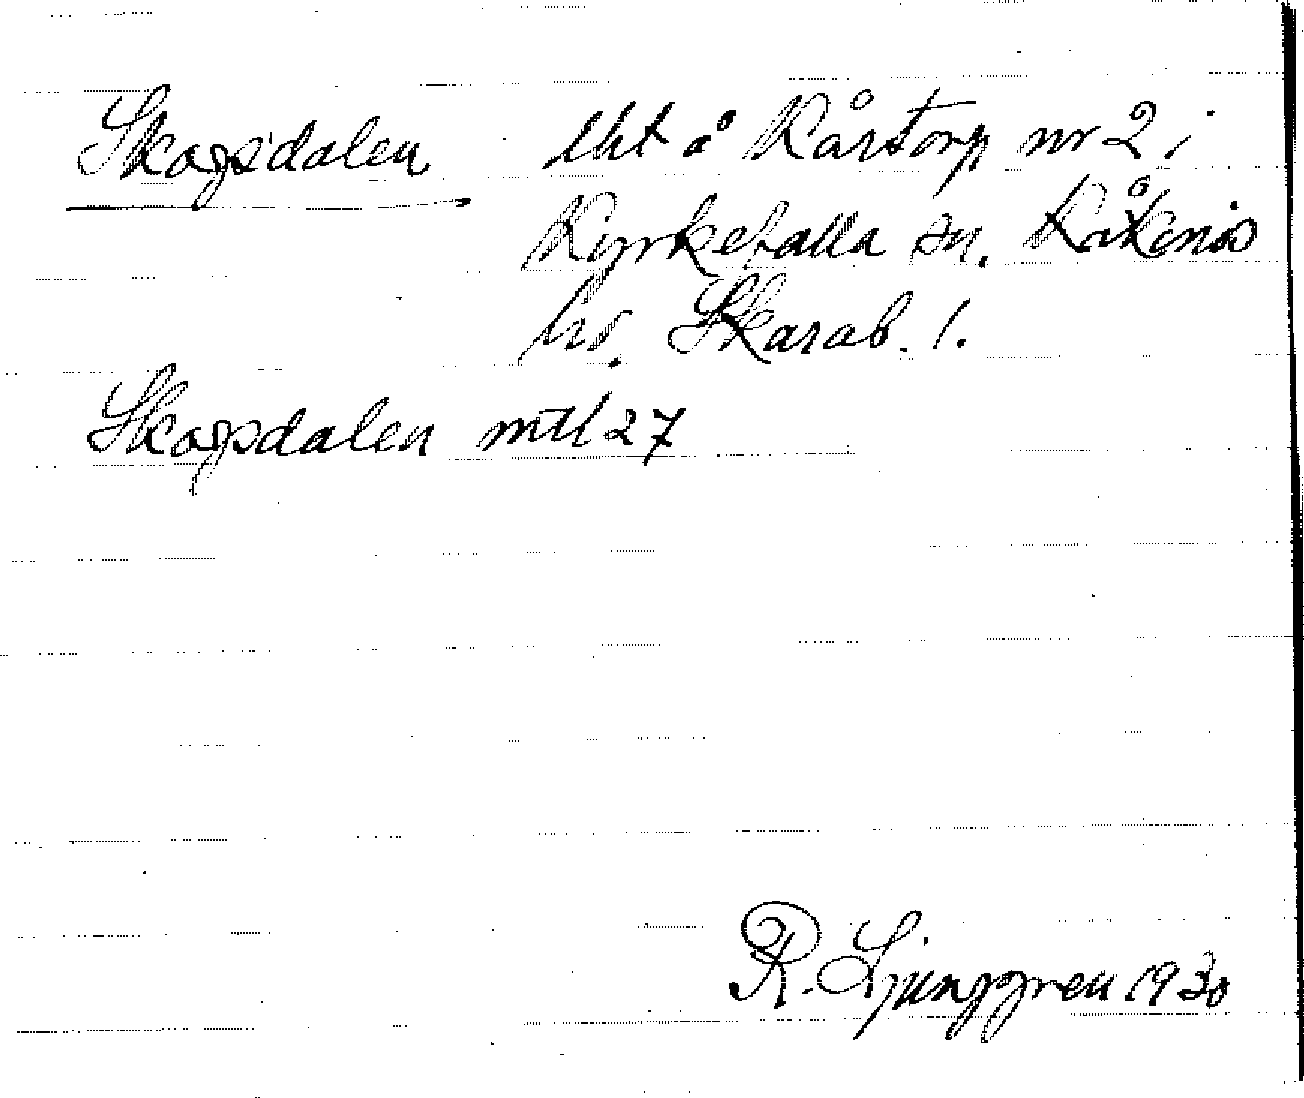 Skogsdalen lht å Kårtorp nr 2 i
Kyrkefalla sn. Kåkinds
hd. Skarab. l.
Skogsdalen mtl 27
R. Ljunggren 1930